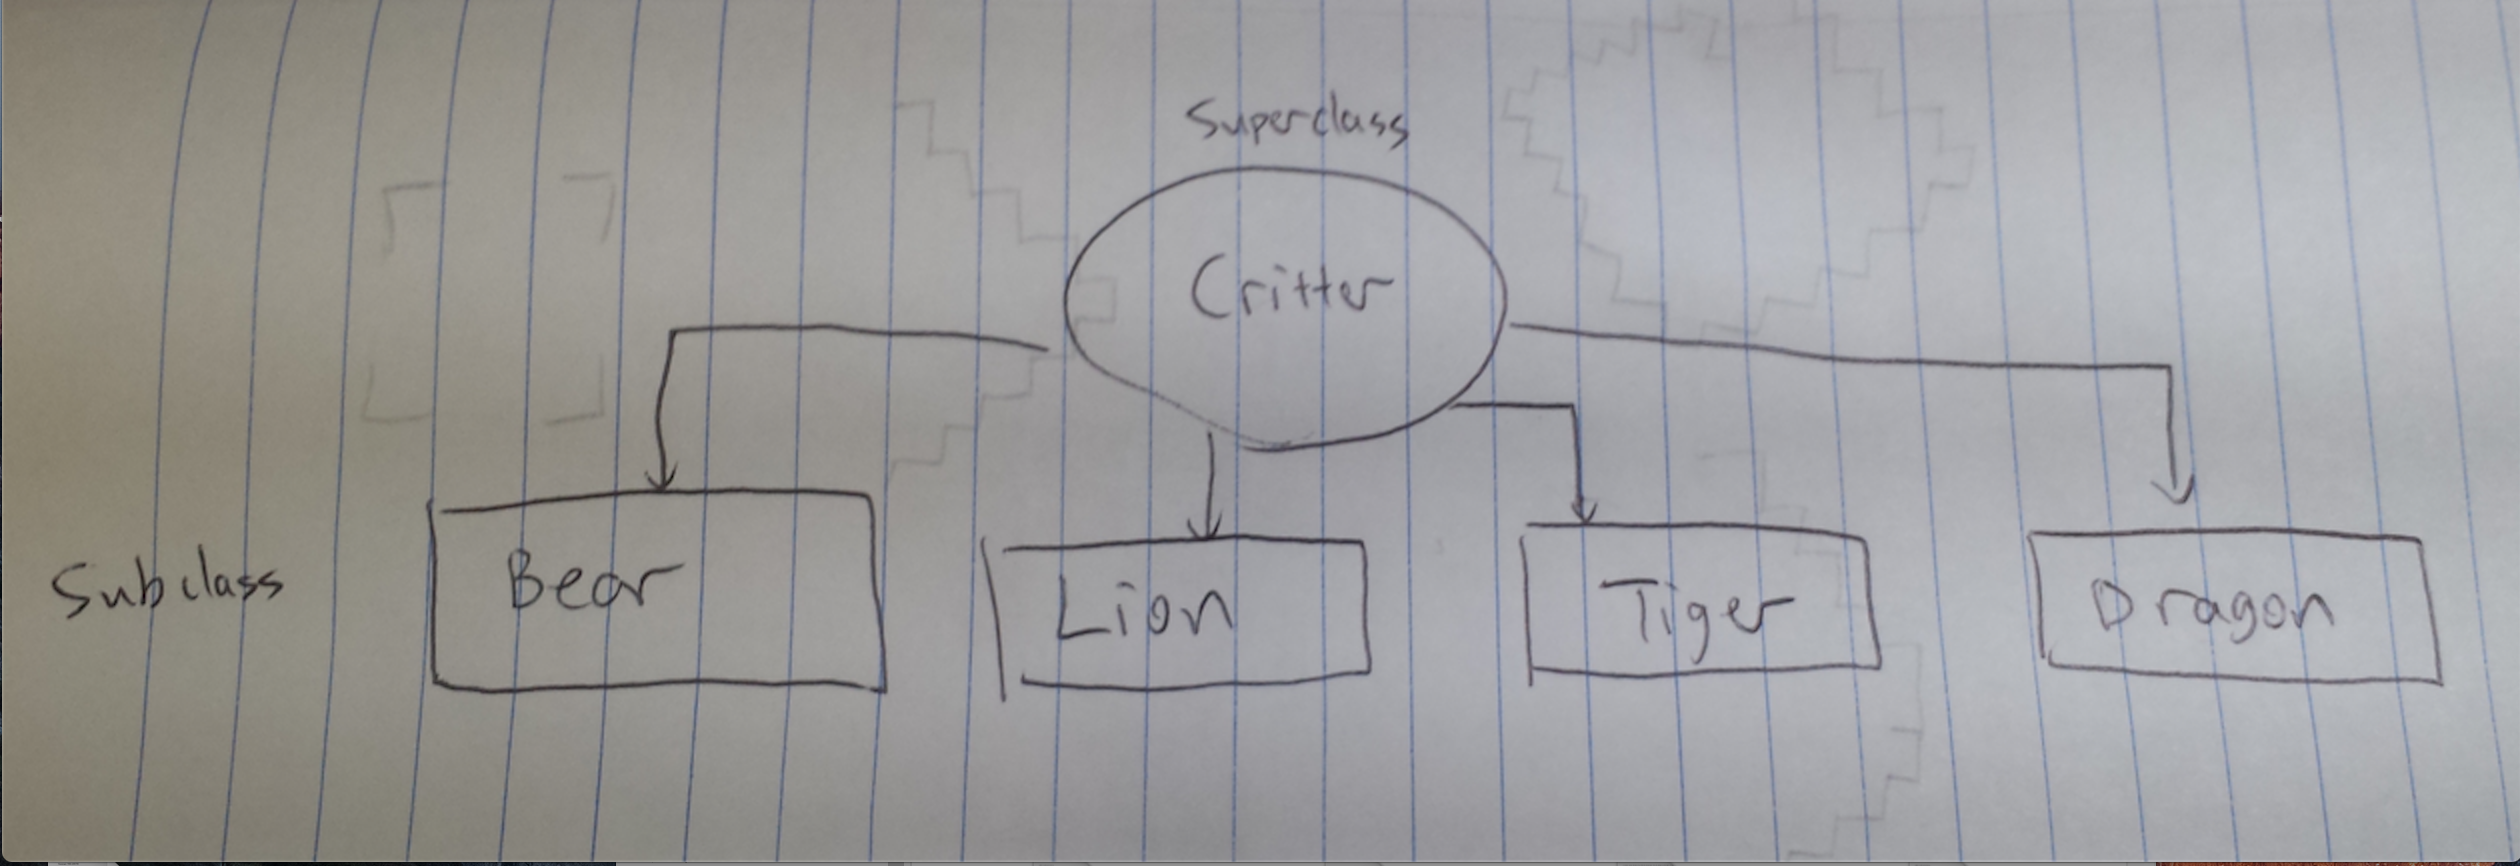 Superclass
Critter
Subclass
Bear
Lion
Tiger
Dragon